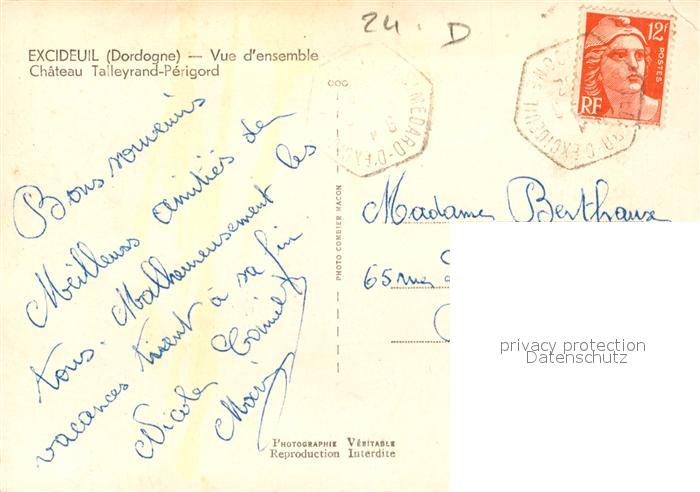 24. D
EXCIDEUIL (Dordogne) — Vue d'ensemble
Château Talleyrand-Périgord
12F
POSTES
RF
MÉDARD-D'EX
D'EXCIDEUIL
Bons souvenirs
Meilleures amitiés de
tous. Malheureusement les
vacances tirent à sa fin
Nicole
PHOTO COMBIER MACON
Madame Berthaux
65 rue
privacy protection
Datenschutz
PHOTOGRAPHIE VÉRITABLE
Reproduction Interdite